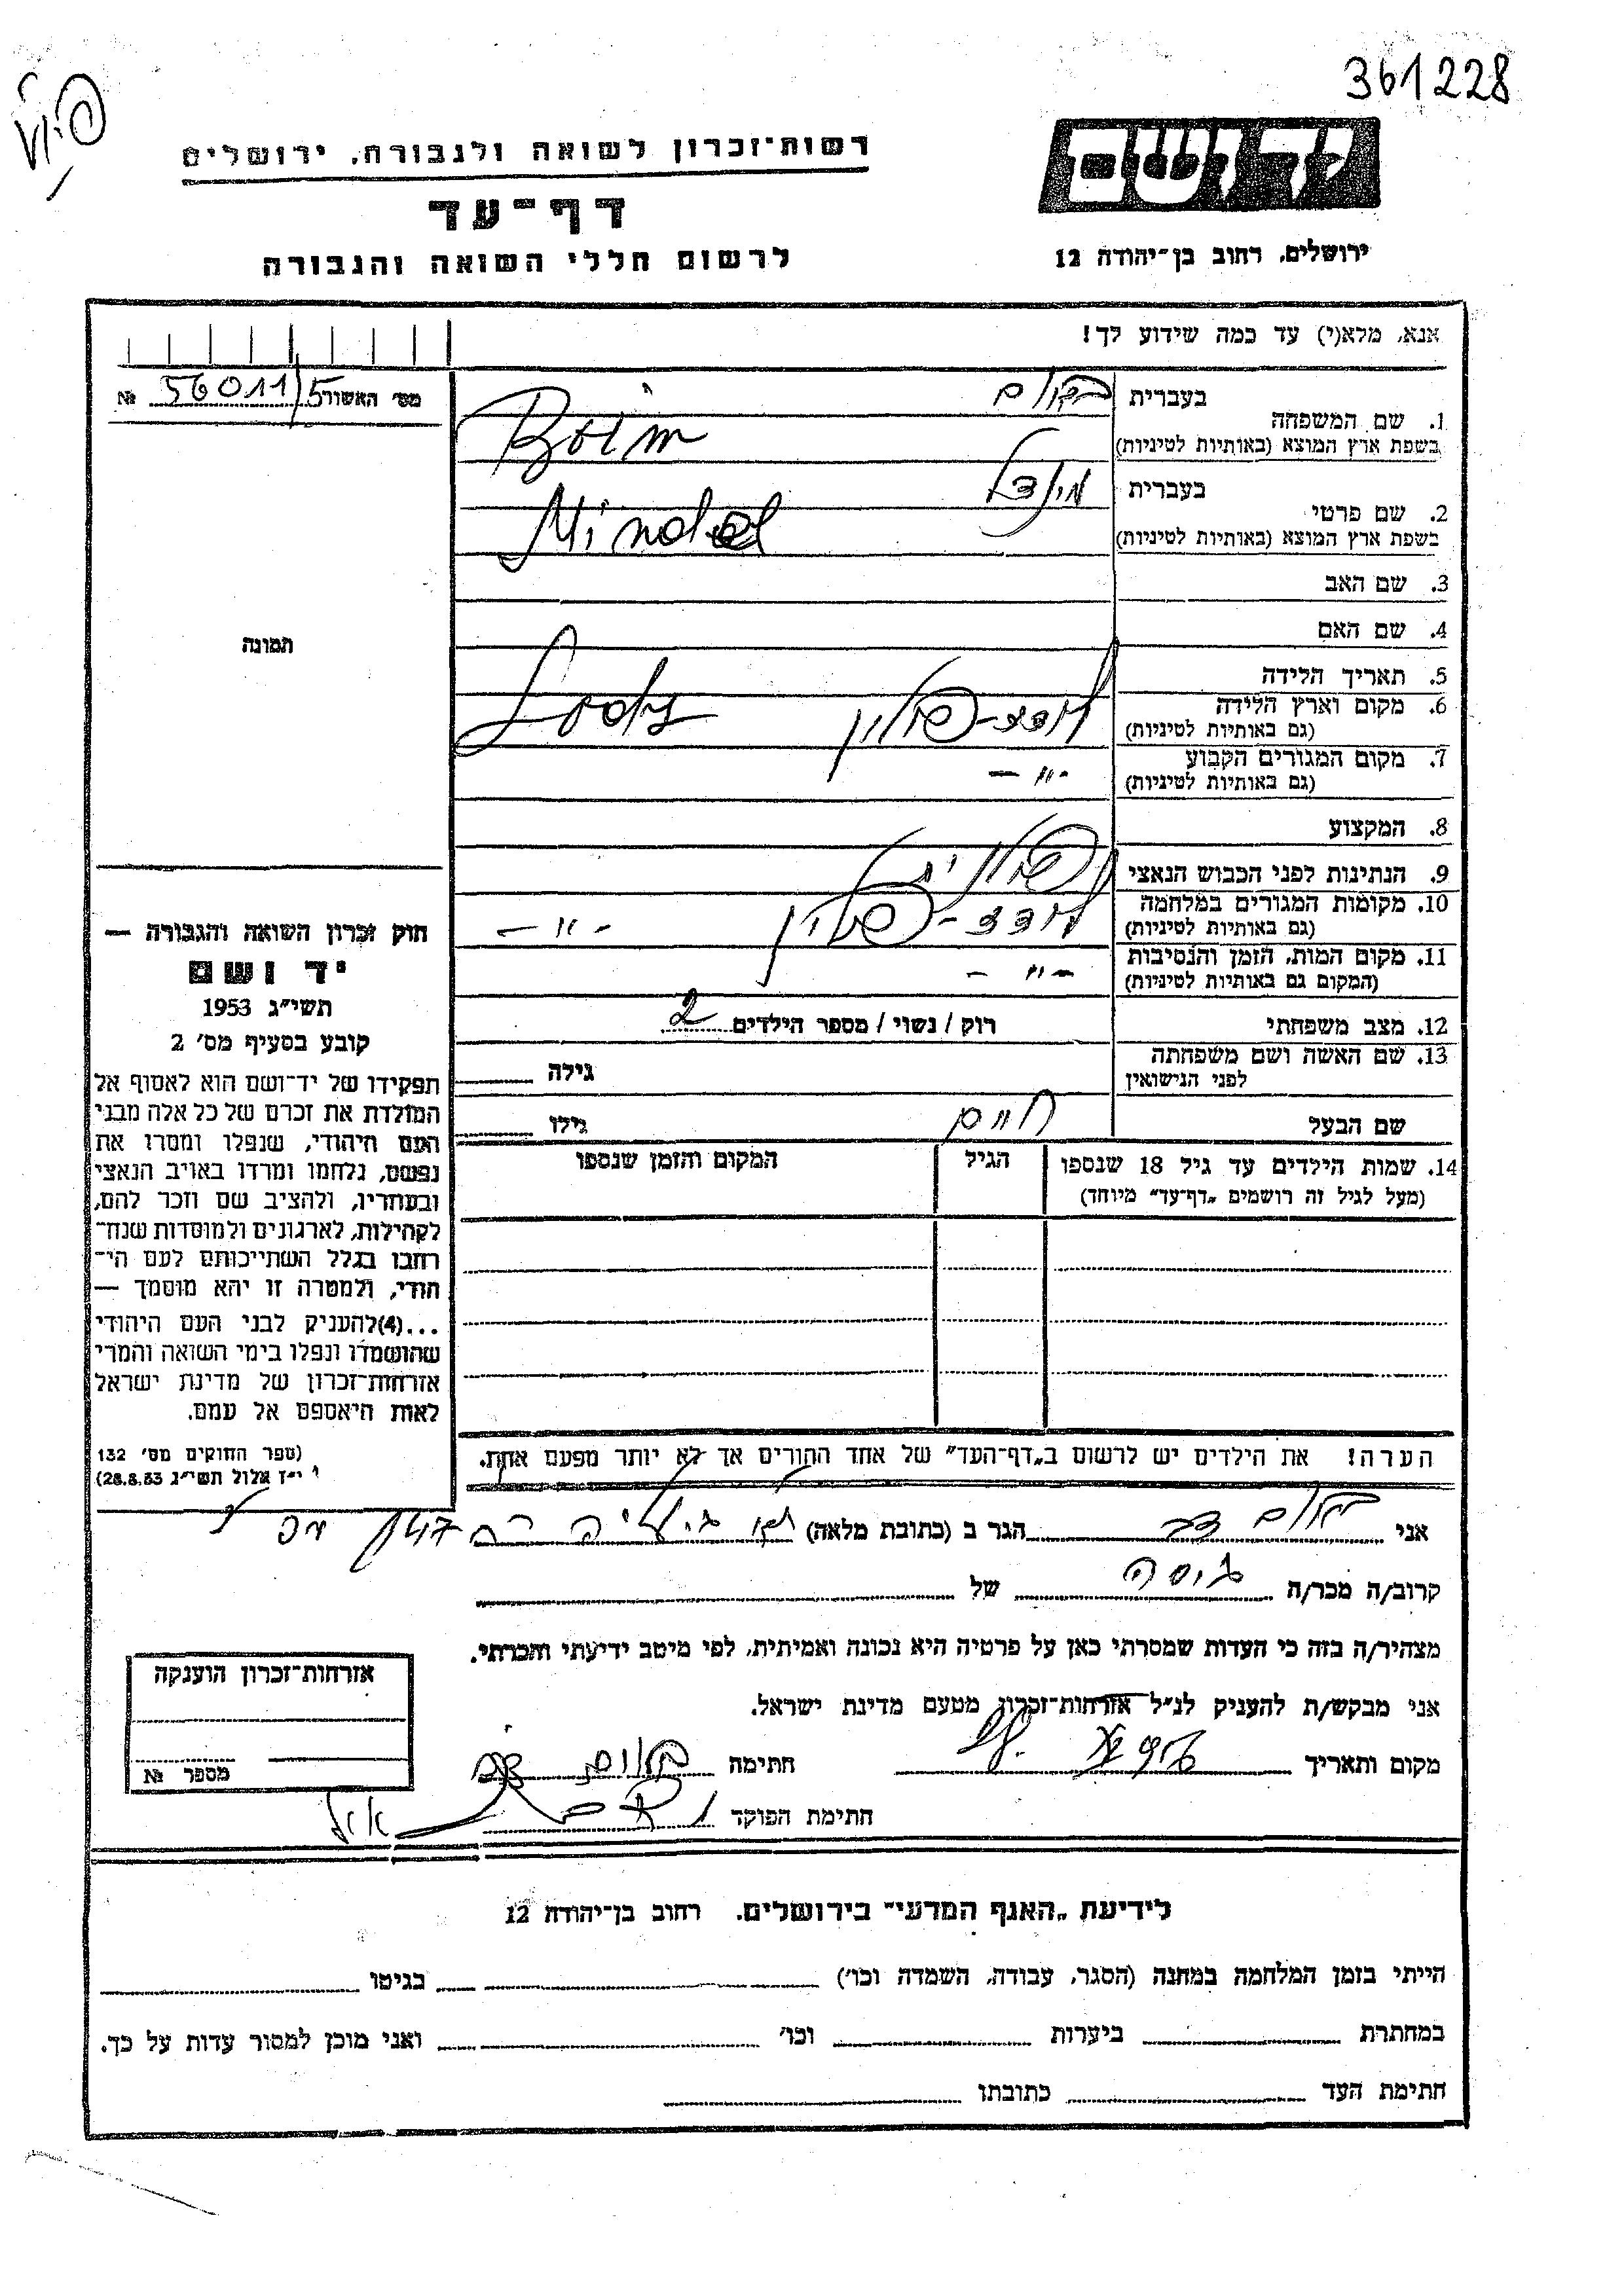 361228
רשות־זכרון לשואה ולגבורה. ירושלים
יד ושם
דף־עד
לרשום חללי השואה והגבורה
ירושלים, רחוב בן־יהודה 12
אנא, מלא(י) עד כמה שידוע לך!
מס׳ האשור 56011/5 №
1. שם המשפחה
בעברית
בשפת ארץ המוצא (באותיות לטיניות) Boim
2. שם פרטי
בעברית מינדל
בשפת ארץ המוצא (באותיות לטיניות) Mindel
3. שם האב
4. שם האם
תמונה
5. תאריך הלידה
6. מקום וארץ הלידה לודז-פולין Lodz
(גם באותיות לטיניות)
7. מקום המגורים הקבוע -״-
(גם באותיות לטיניות)
8. המקצוע
9. הנתינות לפני הכבוש הנאצי פולנית
10. מקומות המגורים במלחמה לודז-פולין -״-
(גם באותיות לטיניות)
11. מקום המות, הזמן והנסיבות -״-
(המקום גם באותיות לטיניות)
12. מצב משפחתי רוק / נשוי / מספר הילדים 2
13. שם האשה ושם משפחתה גילה
לפני הנישואין
שם הבעל חיים גילו
14. שמות הילדים עד גיל 18 שנספו הגיל המקום והזמן שנספו
(מעל לגיל זה רושמים „דף־עד״ מיוחד)
חוק זכרון השואה והגבורה —
יד ושם
תשי״ג 1953
קובע בסעיף מס׳ 2
תפקידו של יד־ושם הוא לאסוף אל
המולדת את זכרם של כל אלה מבני
העם היהודי, שנפלו ומסרו את
נפשם, נלחמו ומרדו באויב הנאצי
ובעוזריו, ולהציב שם וזכר להם,
לקהילות, לארגונים ולמוסדות שנח־
רחבו בגלל השתייכותם לעם הי־
הודי, ולמטרה זו יהא מוסמך —
...(4)להעניק לבני העם היהודי
שהושמדו ונפלו בימי השואה והמרי
אזרחות־זכרון של מדינת ישראל
לאות היאספם אל עמם.
(ספר החוקים מס׳ 132
י״ז אלול תשי״ג 28.8.53)
הערה! את הילדים יש לרשום ב„דף־העד״ של אחד ההורים אך לא יותר מפעם אחת.
אני הגר ב (כתובת מלאה)
קרוב/ה מכר/ה גיסה של
מצהיר/ה בזה כי העדות שמסרתי כאן על פרטיה היא נכונה ואמיתית, לפי מיטב ידיעתי והכרתי.
אני מבקש/ת להעניק לנ״ל אזרחות־זכרון מטעם מדינת ישראל.
מקום ותאריך חתימה
חתימת הפוקד
אזרחות־זכרון הוענקה
מספר №
לידיעת „האגף המדעי״ בירושלים. רחוב בן־יהודה 12
הייתי בזמן המלחמה במחנה (הסגר, עבודה, השמדה וכו׳) בגיטו
במחתרת ביערות וכו׳ ואני מוכן למסור עדות על כך.
חתימת העד כתובתו